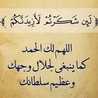 ﴿ لَئِن شَكَرْتُمْ لَأَزِيدَنَّكُمْ ﴾
اللهم لك الحمد
كما ينبغي لجلال وجهك
وعظيم سلطانك